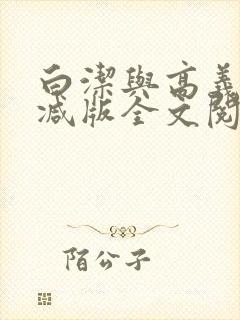 白潔與高義
减版全文閱
陌公子